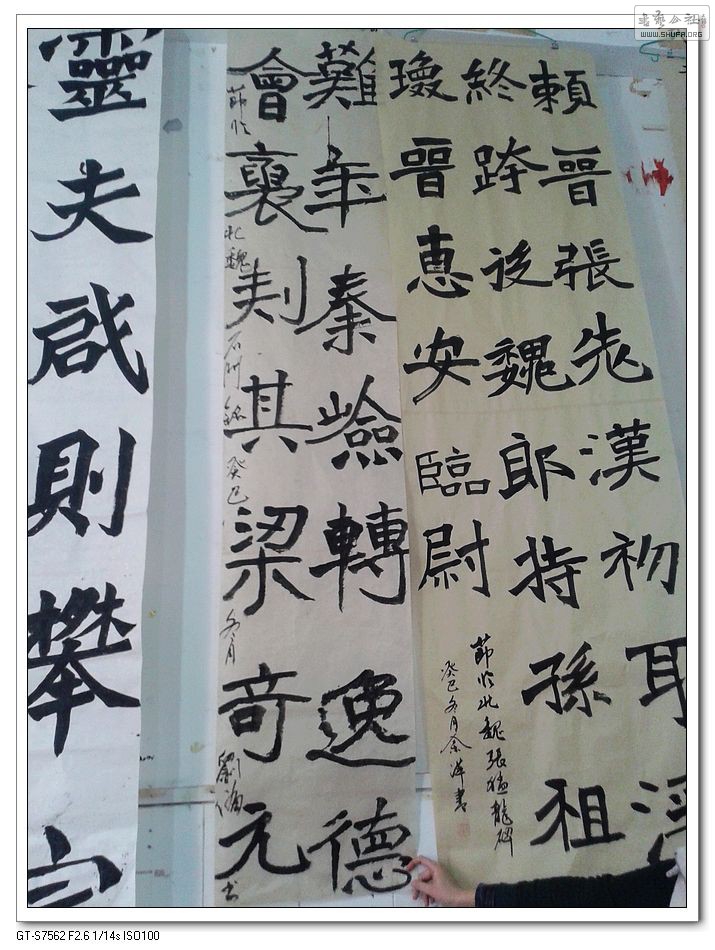 頼晉張漢初
終跨後魏郎持孫祖
瓊晉惠安臨尉
節臨北魏張猛龍碑
癸巳冬月余洋書
難年秦險轉逸德
會褒其梁奇元
節臨北魏石門銘癸巳冬月劉书
靈夫啟則攀
书艺公社
WWW.SHUFA.ORG
GT-S7562 F2.6 1/14s ISO100